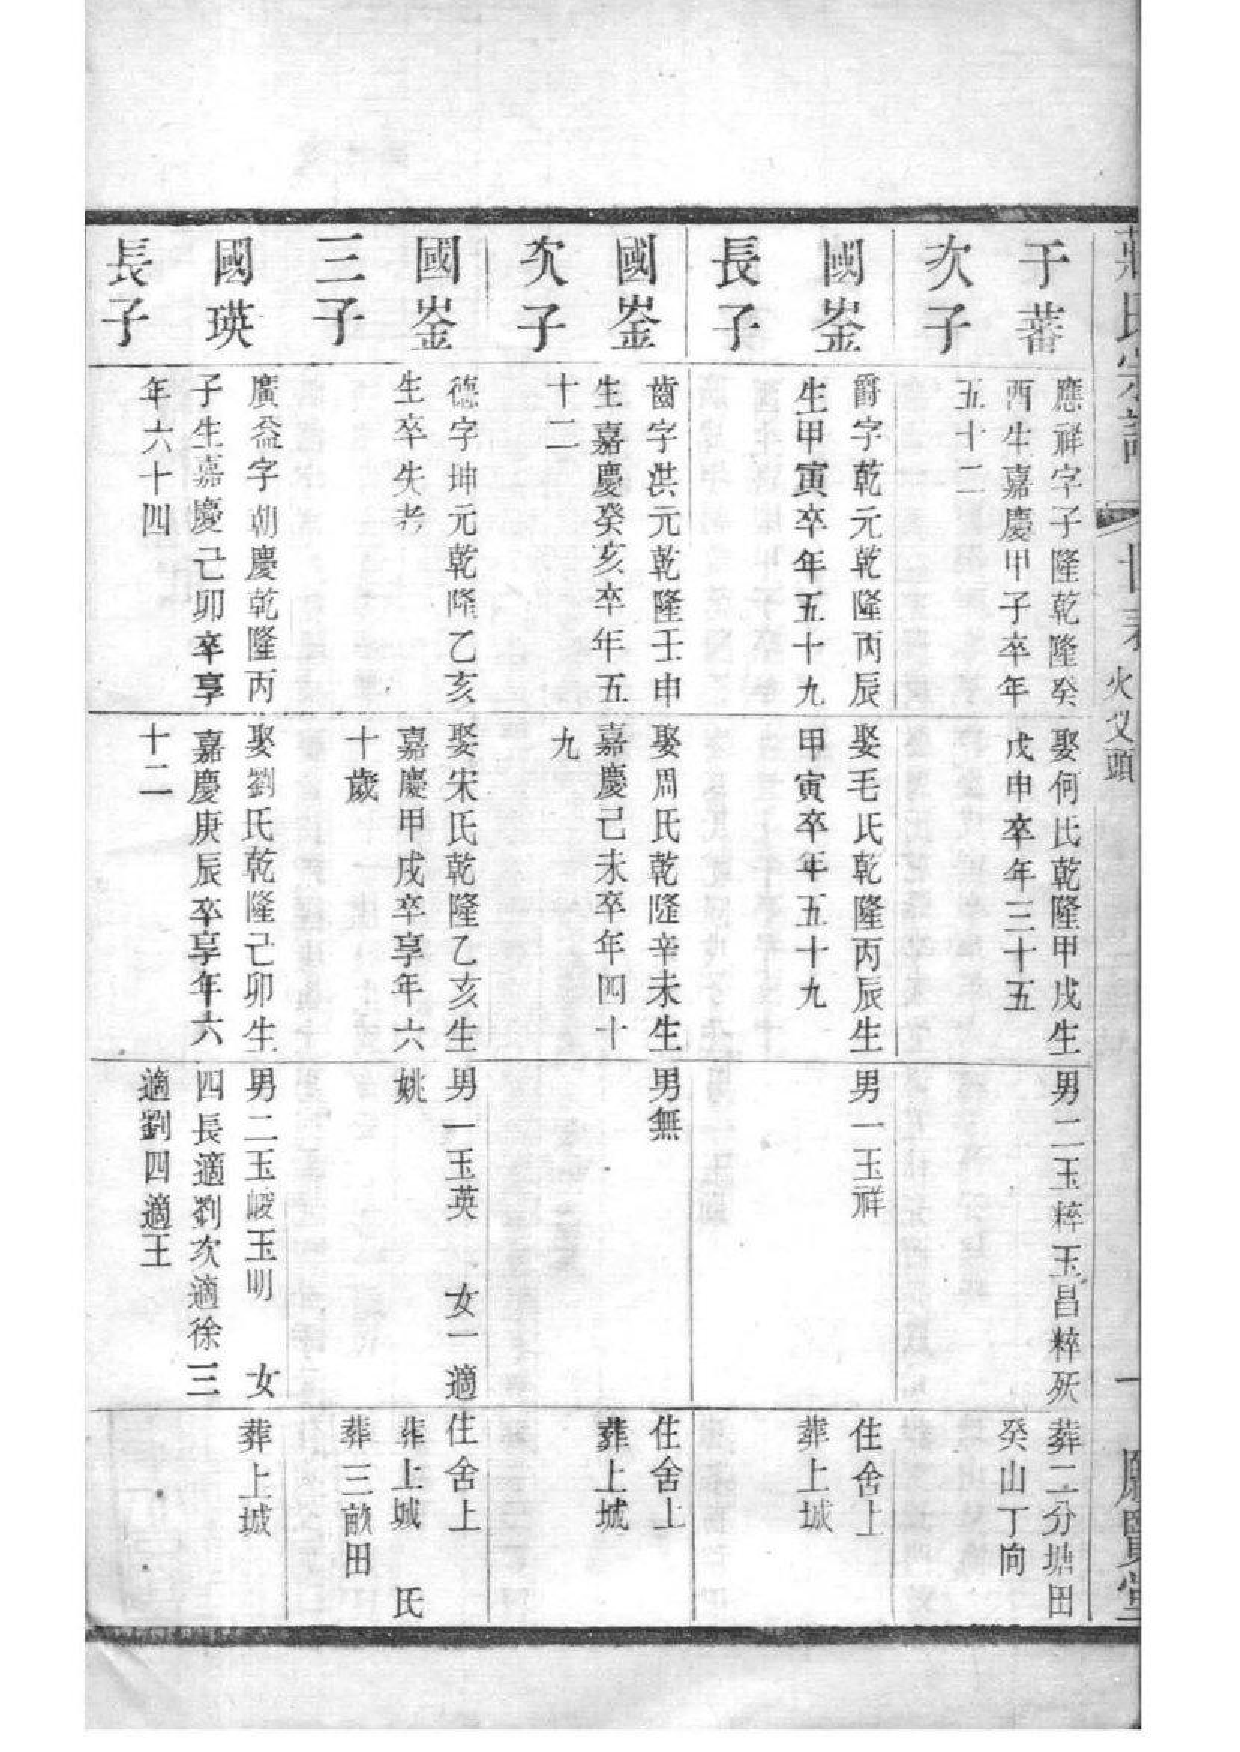 于蕃
次子
應祥字子隆乾隆癸
酉生嘉慶甲子卒年
五十二
娶何氏乾隆甲戌生
戊申卒年三十五
男二玉粹玉昌粹殀
葬二分塘田
癸山丁向
國崟
長子
爵字乾元乾隆丙辰
生甲寅卒年五十九
娶毛氏乾隆丙辰生
甲寅卒年五十九
男一玉祥
住舍上
葬上城
國崟
次子
齒字洪元乾隆壬申
生嘉慶癸亥卒年五
十二
娶周氏乾隆辛未生
嘉慶己未卒年四十
九
男無
住舍上
葬上城
國崟
三子
德字坤元乾隆乙亥
生卒失考
娶宋氏乾隆乙亥生
嘉慶甲戌卒享年六
十歲
男一玉英 女一適
姚
住舍上
葬上城 氏
葬三畝田
國瑛
長子
廣益字朝慶乾隆丙
子生嘉慶己卯卒享
年六十四
娶劉氏乾隆己卯生
嘉慶庚辰卒享年六
十二
男二玉峻玉明 女
四長適劉次適徐三
適劉四適王
葬上城